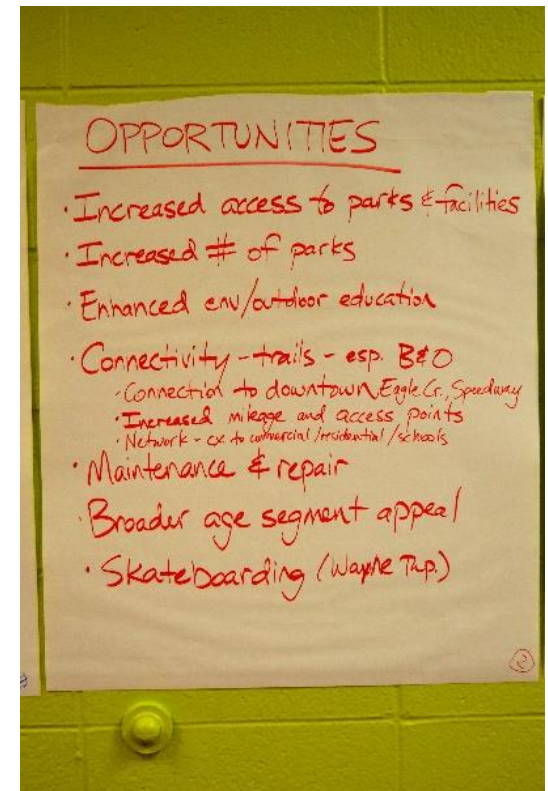 OPPORTUNITIES
· Increased access to parks & facilities
· Increased # of parks
· Enhanced env/outdoor education
· Connectivity - trails - esp. B&O
· Connection to downtown, Eagle Cr., Speedway
· Increased mileage and access points
· Network - cx to commercial/residential/schools
· Maintenance & repair
· Broader age segment appeal
· Skateboarding (Wayne Twp.)
2